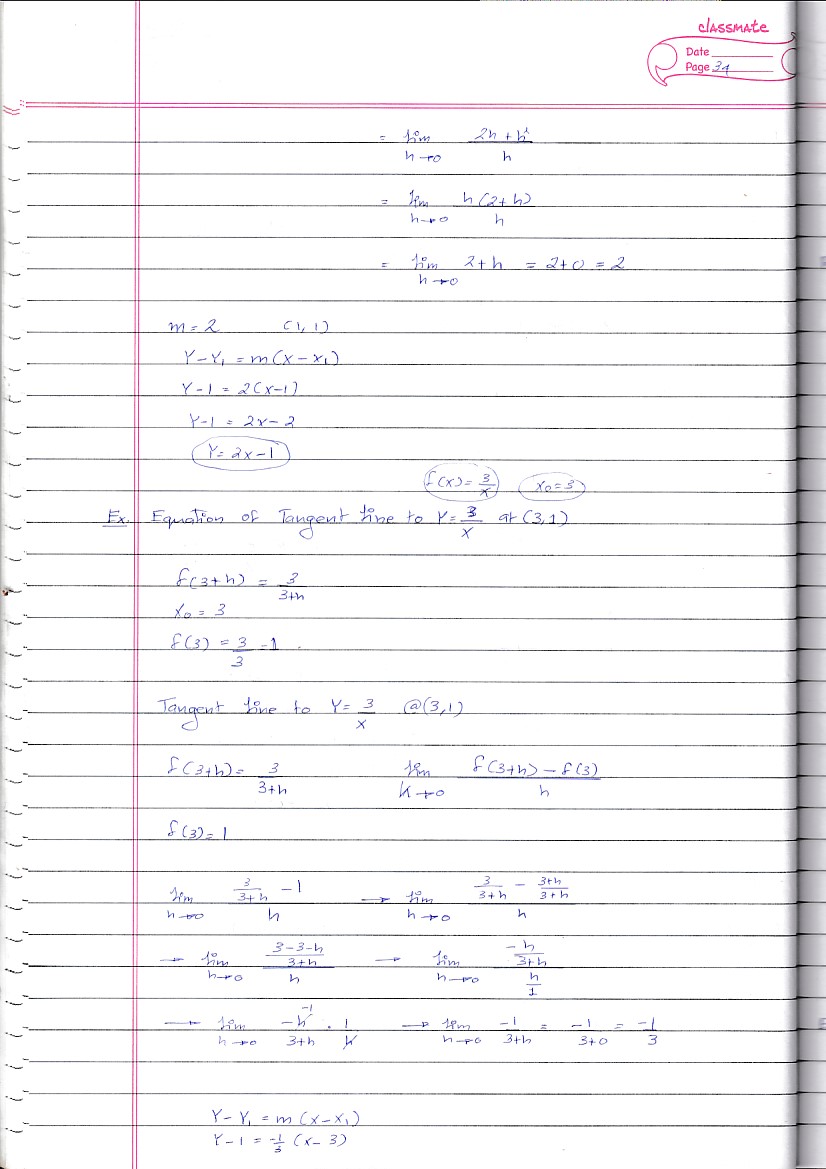 classmate
Date
Page 39
= lim 2h + h² / h
h→0
= lim h(2+h) / h
h→0
= lim 2+h = 2+0 = 2
h→0
m = 2 (1, 1)
Y-Y₁ = m(x-x₁)
Y-1 = 2(x-1)
Y-1 = 2x-2
Y = 2x-1
f(x) = 3/x x₀=3
Ex. Equation of Tangent line to Y = 3/x at (3,1)
f(3+h) = 3/3+h
x₀ = 3
f(3) = 3/3 -1.
Tangent line to Y = 3/x @(3,1)
f(3+h) = 3/3+h lim f(3+h) - f(3) / h
h→0
f(3) = 1
lim 3/3+h - 1 / h → lim 3/3+h - 3+h/3+h / h
h→0 h→0
→ lim 3-3-h/3+h / h → lim -h/3+h / h/1
h→0 h→0
→ lim -h⁻¹/3+h · 1/h → lim -1/3+h = -1/3+0 = -1/3
h→0 h→0
Y-Y₁ = m(x-x₁)
Y-1 = -1/3 (x-3)